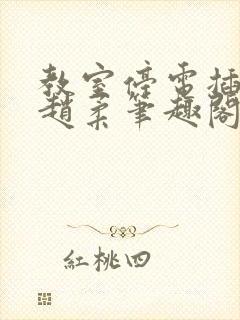 教室停電插
趙柔筆趣閣
紅桃四